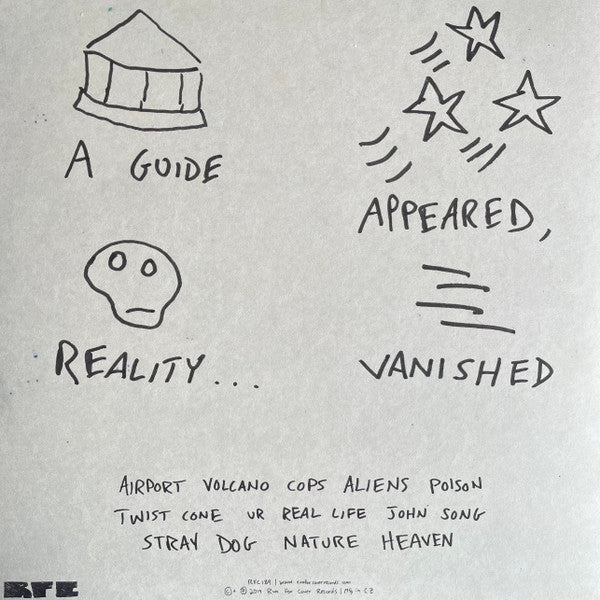 A GUIDE
APPEARED,
REALITY...
VANISHED
AIRPORT VOLCANO COPS ALIENS POISON
TWIST CONE UR REAL LIFE JOHN SONG
STRAY DOG NATURE HEAVEN
© + ℗ 2019 Run For Cover Records | Mfg in CZ
RFC